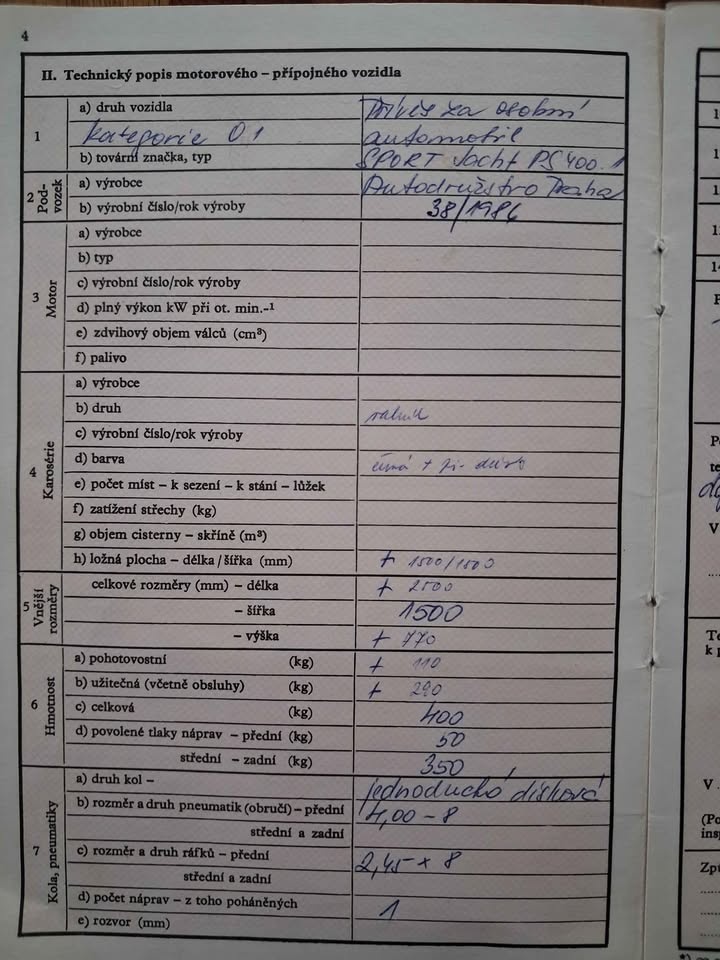 4
II. Technický popis motorového – přípojného vozidla
1
a) druh vozidla
přívěs za osobní
kategorie O1
automobil
b) tovární značka, typ
SPORT Jacht PS 400.1
2 Pod-
vozek
a) výrobce
Autodružstvo Praha
b) výrobní číslo/rok výroby
38/1986
3 Motor
a) výrobce
b) typ
c) výrobní číslo/rok výroby
d) plný výkon kW při ot. min.-¹
e) zdvihový objem válců (cm³)
f) palivo
4 Karosérie
a) výrobce
b) druh
valník
c) výrobní číslo/rok výroby
d) barva
e) počet míst – k sezení – k stání – lůžek
f) zatížení střechy (kg)
g) objem cisterny – skříně (m³)
h) ložná plocha – délka/šířka (mm)
+ 1500/1500
5 Vnější
rozměry
celkové rozměry (mm) – délka
+ 2500
– šířka
1500
– výška
+ 770
6 Hmotnost
a) pohotovostní (kg)
+ 110
b) užitečná (včetně obsluhy) (kg)
+ 290
c) celková (kg)
400
d) povolené tlaky náprav – přední (kg)
50
střední – zadní (kg)
350
7 Kola, pneumatiky
a) druh kol –
jednoduchá disková
b) rozměr a druh pneumatik (obručí) – přední
4,00 – 8
střední a zadní
c) rozměr a druh ráfků – přední
2,45 x 8
střední a zadní
d) počet náprav – z toho poháněných
1
e) rozvor (mm)